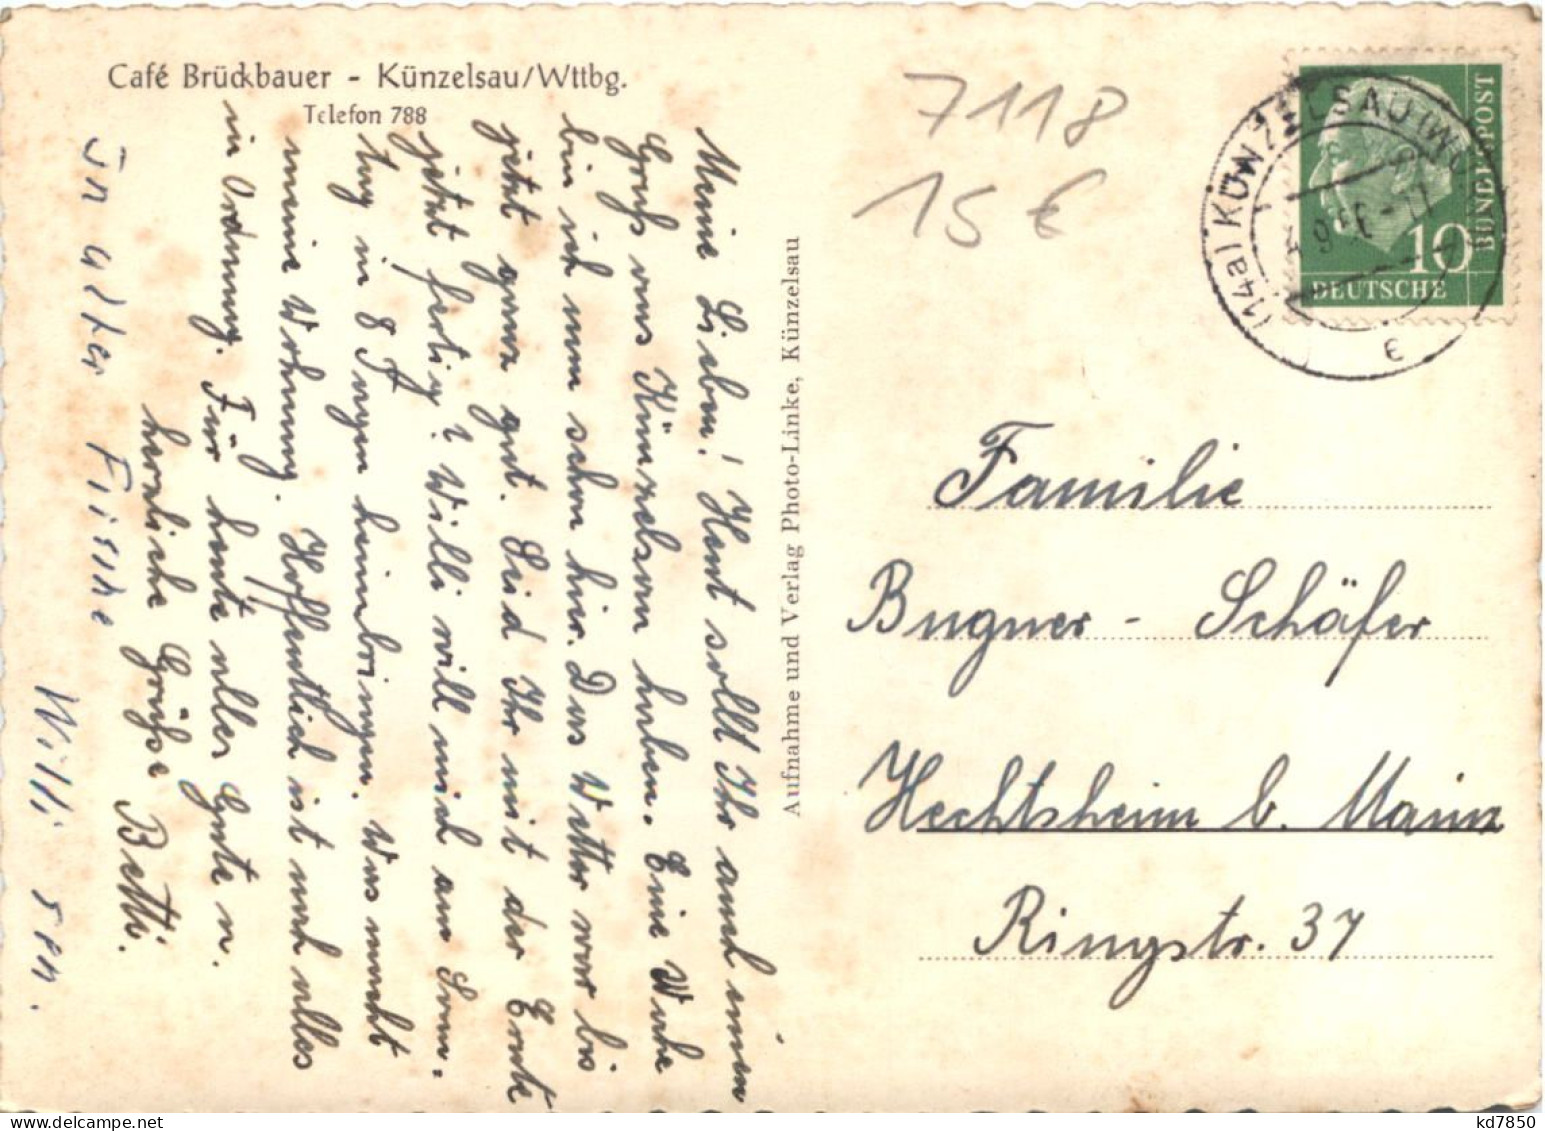 Café Brückbauer - Künzelsau/Wttbg.
Telefon 788
7118
15 €
(14a) KÜNZELSAU (WÜ
e
10
DEUTSCHE
BUNDESPOST
Meine Lieben! Heut sollt Ihr auch einen
Gruß aus Künzelsau haben. Eine Woche
bin ich nun schon hier. Das Wetter war bis
jetzt ganz gut. Seid Ihr mit der Ernte
jetzt fertig? Willi will mich am Sonn-
tag in 8 Tagen heimbringen. Was macht
meine Wohnung. Hoffentlich ist auch alles
in Ordnung. Für heute alles Gute u.
herzliche Grüße Betti.
In alter Frische
Willi sen.
Aufnahme und Verlag Photo-Linke, Künzelsau
Familie
Bugner - Schäfer
Hechtsheim b. Mainz
Ringstr. 37
kd7850